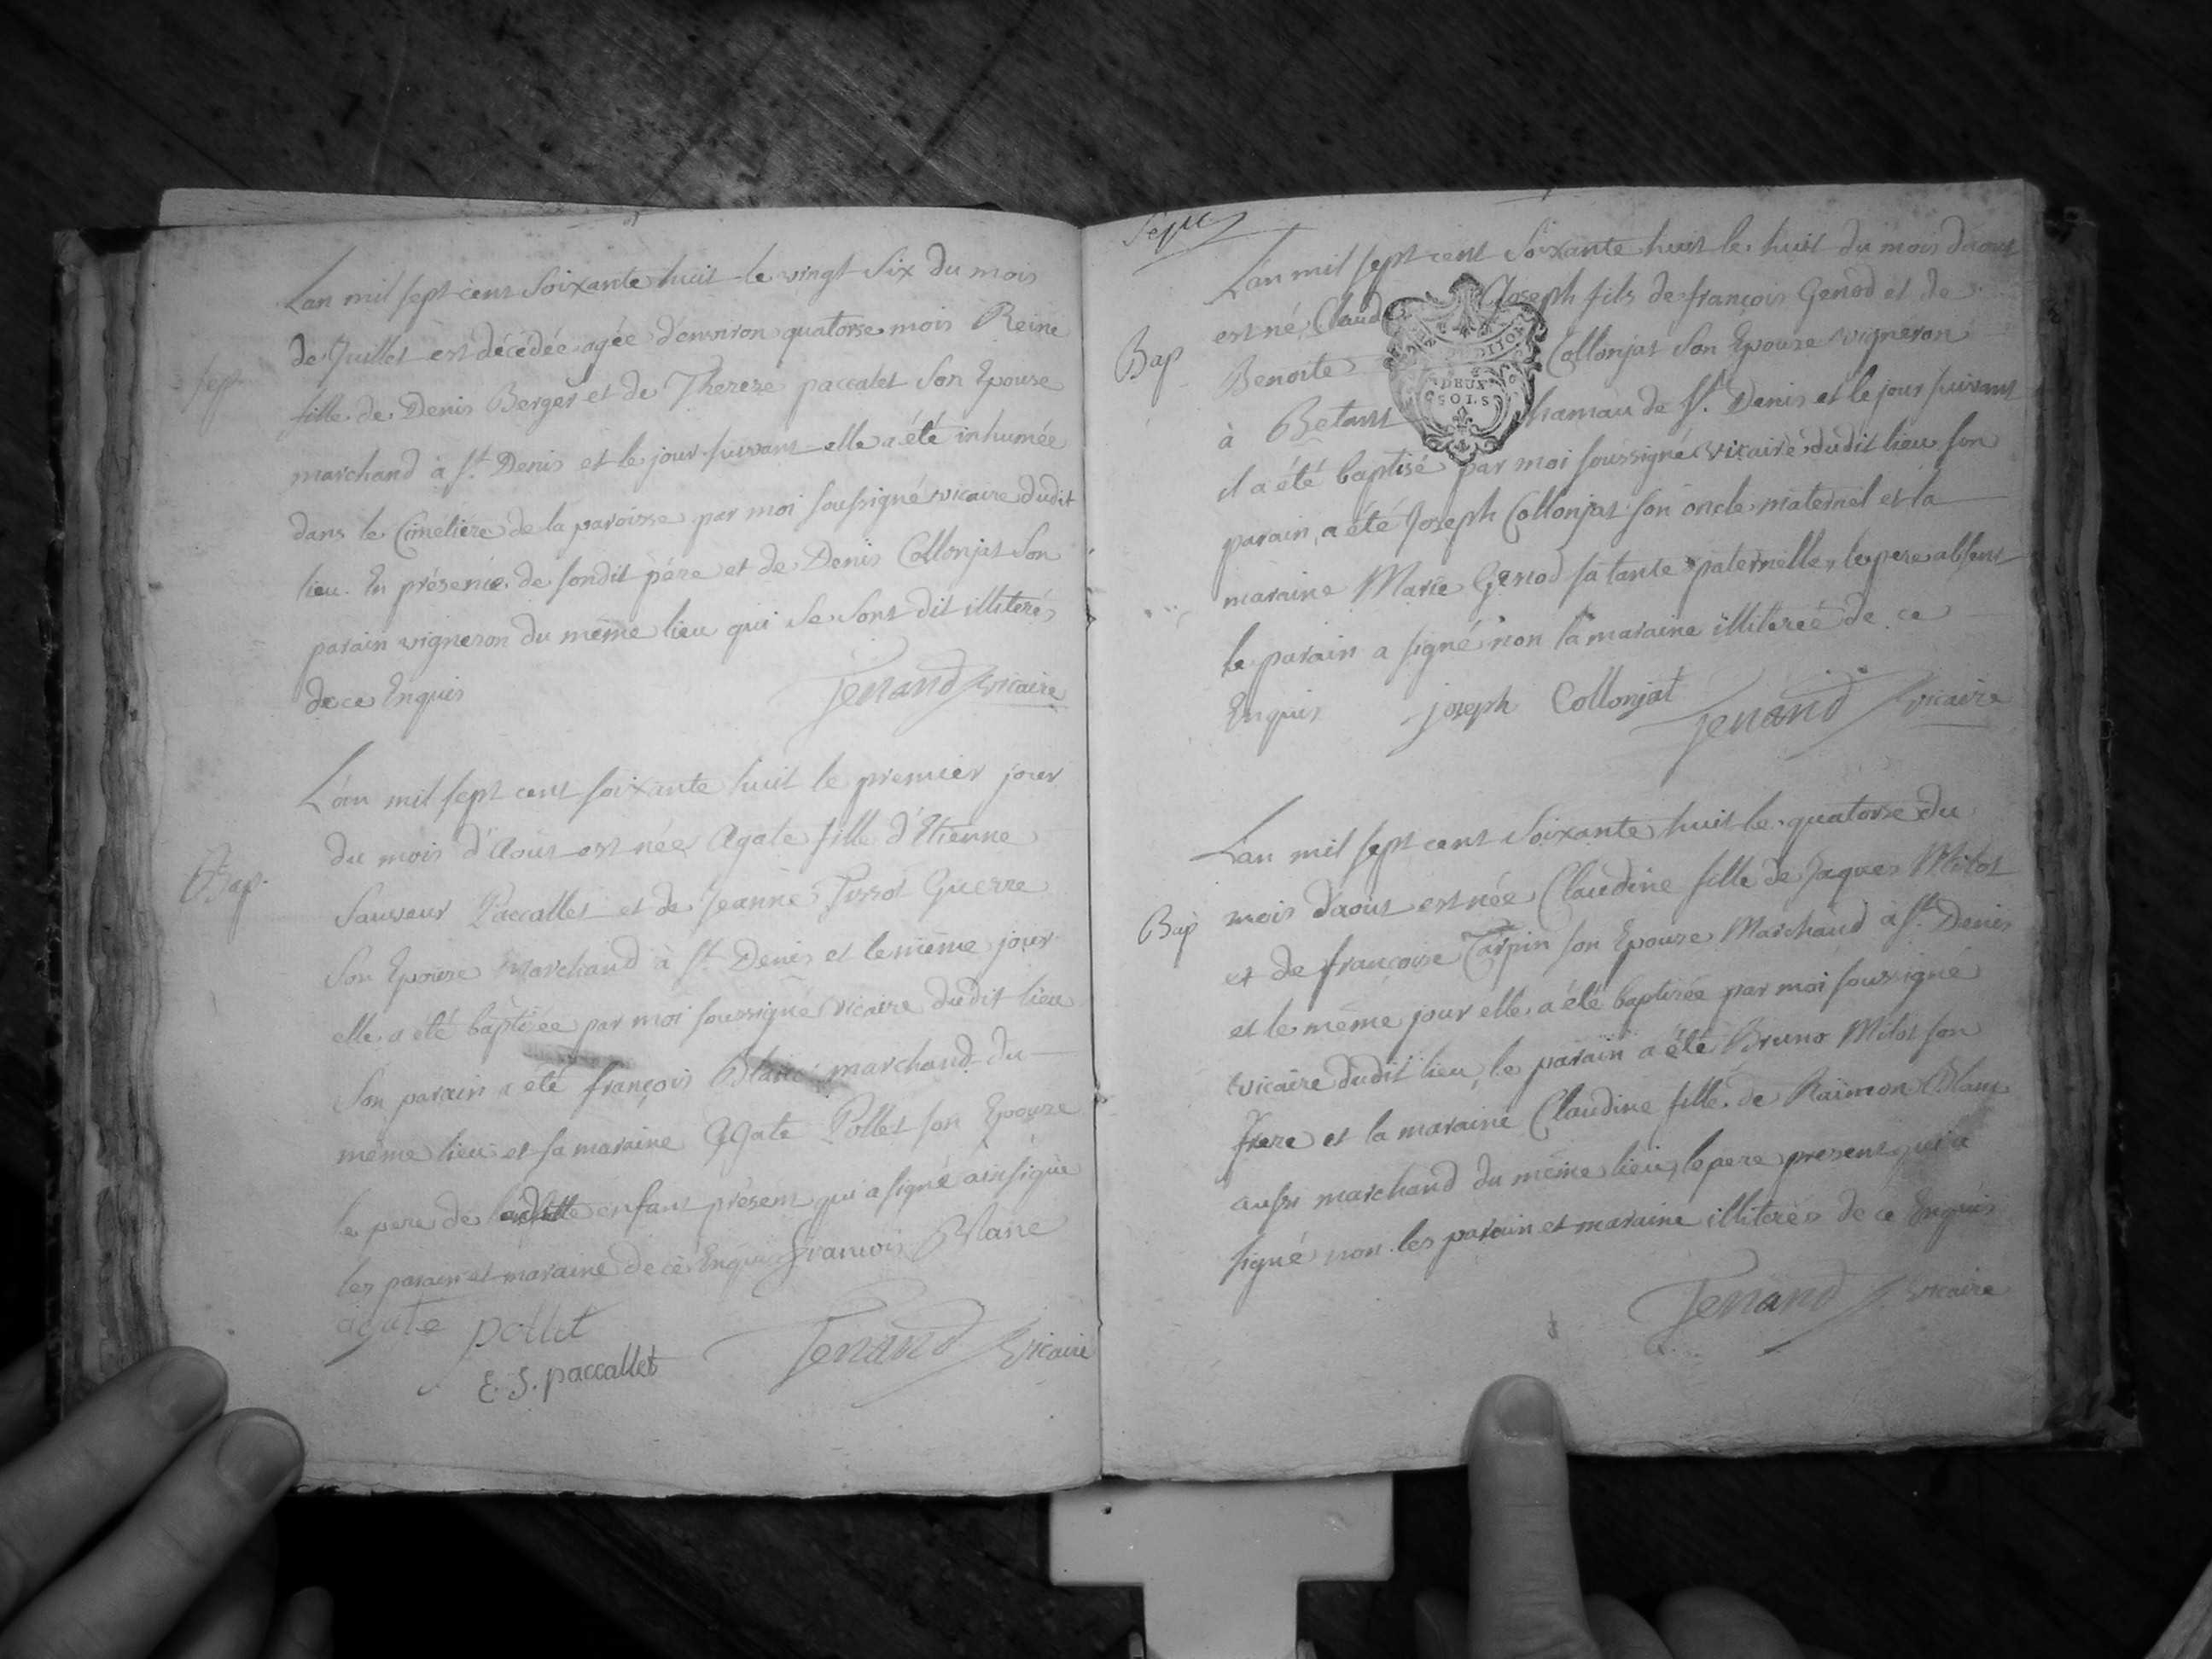 Lan mil sept cent soixante huit le vingt six du mois
de Juillet est décédée agée d'environ quatorse mois Reine
sep.
fille de Denis Berger et de Therese paccalet son Epouse
marchand à St. Denis et le jour suivant elle a été inhumée
dans le Cimetiere de la paroisse par moi soussigné vicaire dudit
lieu. En présence de sondit père et de Denis Collonjat son
parain vigneron du même lieu qui se sont dit illiterés
de ce Enquis Jenand vicaire
L'an mil sept cent soixante huit le premier jour
du mois d'Aout est née Agate fille d'Etienne
Bap.
Sauveur Paccallet et de Jeanne Guerre
son Epouse Marchand à St Denis et le même jour
elle a été baptisée par moi soussigné vicaire dudit lieu
son parain a été françois Blanc marchand du
même lieu et sa maraine Agate Pollet son Epouse
le pere de enfant présent qui a signé ainsi que
les parain et maraine de ce Enquis francois Blanc
agate pollet
E. S. paccallet Jenand vicaire
Sept
Lan mil sept cent soixante huit le huit du mois daout
est né Claude Joseph fils de françois Genod et de
Bap
Benoite Collonjat son Epouse vigneron
DEUX SOLS
à Betant hamau de St. Denis et le jour suivant
il a été baptisé par moi soussigné vicaire dudit lieu son
parain a été Joseph Collonjat son oncle maternel et la
maraine Marie Genod sa tante paternelle, le pere absent
le parain a signé non la maraine illiterée de ce
Enquis joseph Collonjat Jenand vicaire
Lan mil sept cent soixante huit le quatorse du
mois daout est née Claudine fille de Jaques Milot
Bap
et de francoise Tarpin son Epouse Marchand à St. Denis
et le même jour elle a été baptisée par moi soussigné
vicaire dudit lieu, le parain a été Bruno Milot son
frere et la maraine Claudine fille de Raimon Blanc
aussi marchand du même lieu, le pere present qui a
signé non les parain et maraine illiterés de ce Enquis
Jenand vicaire